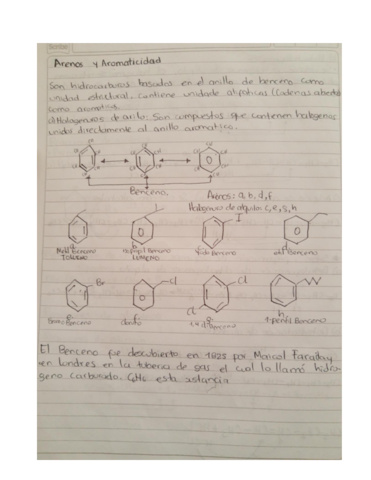 Arenos y Aromaticidad
Son hidrocarburos basados en el anillo de benceno como
unidad estructural. Contiene unidade alifaticas (Cadenas abierta
como aromatica.
Halogenuros de arilo: Son compuestos que contienen halogenos
unido directamente al anillo aromatico.
Benceno.
Arenos: a, b, d, f
Halogenuro de alquilo: c, e, g, h
I
a b c d
Metil Benceno
TOLUENO
Benceno
Yodo Benceno
etil Benceno
Br Cl Cl
Cl
e f g h
Bromo Benceno
Benceno
1-pentil Benceno
El Benceno fue descubierto en 1825 por Faraday
en Londres en la tuberia de gas el cual lo llamó hidro-
geno carburado. C6H6 esta